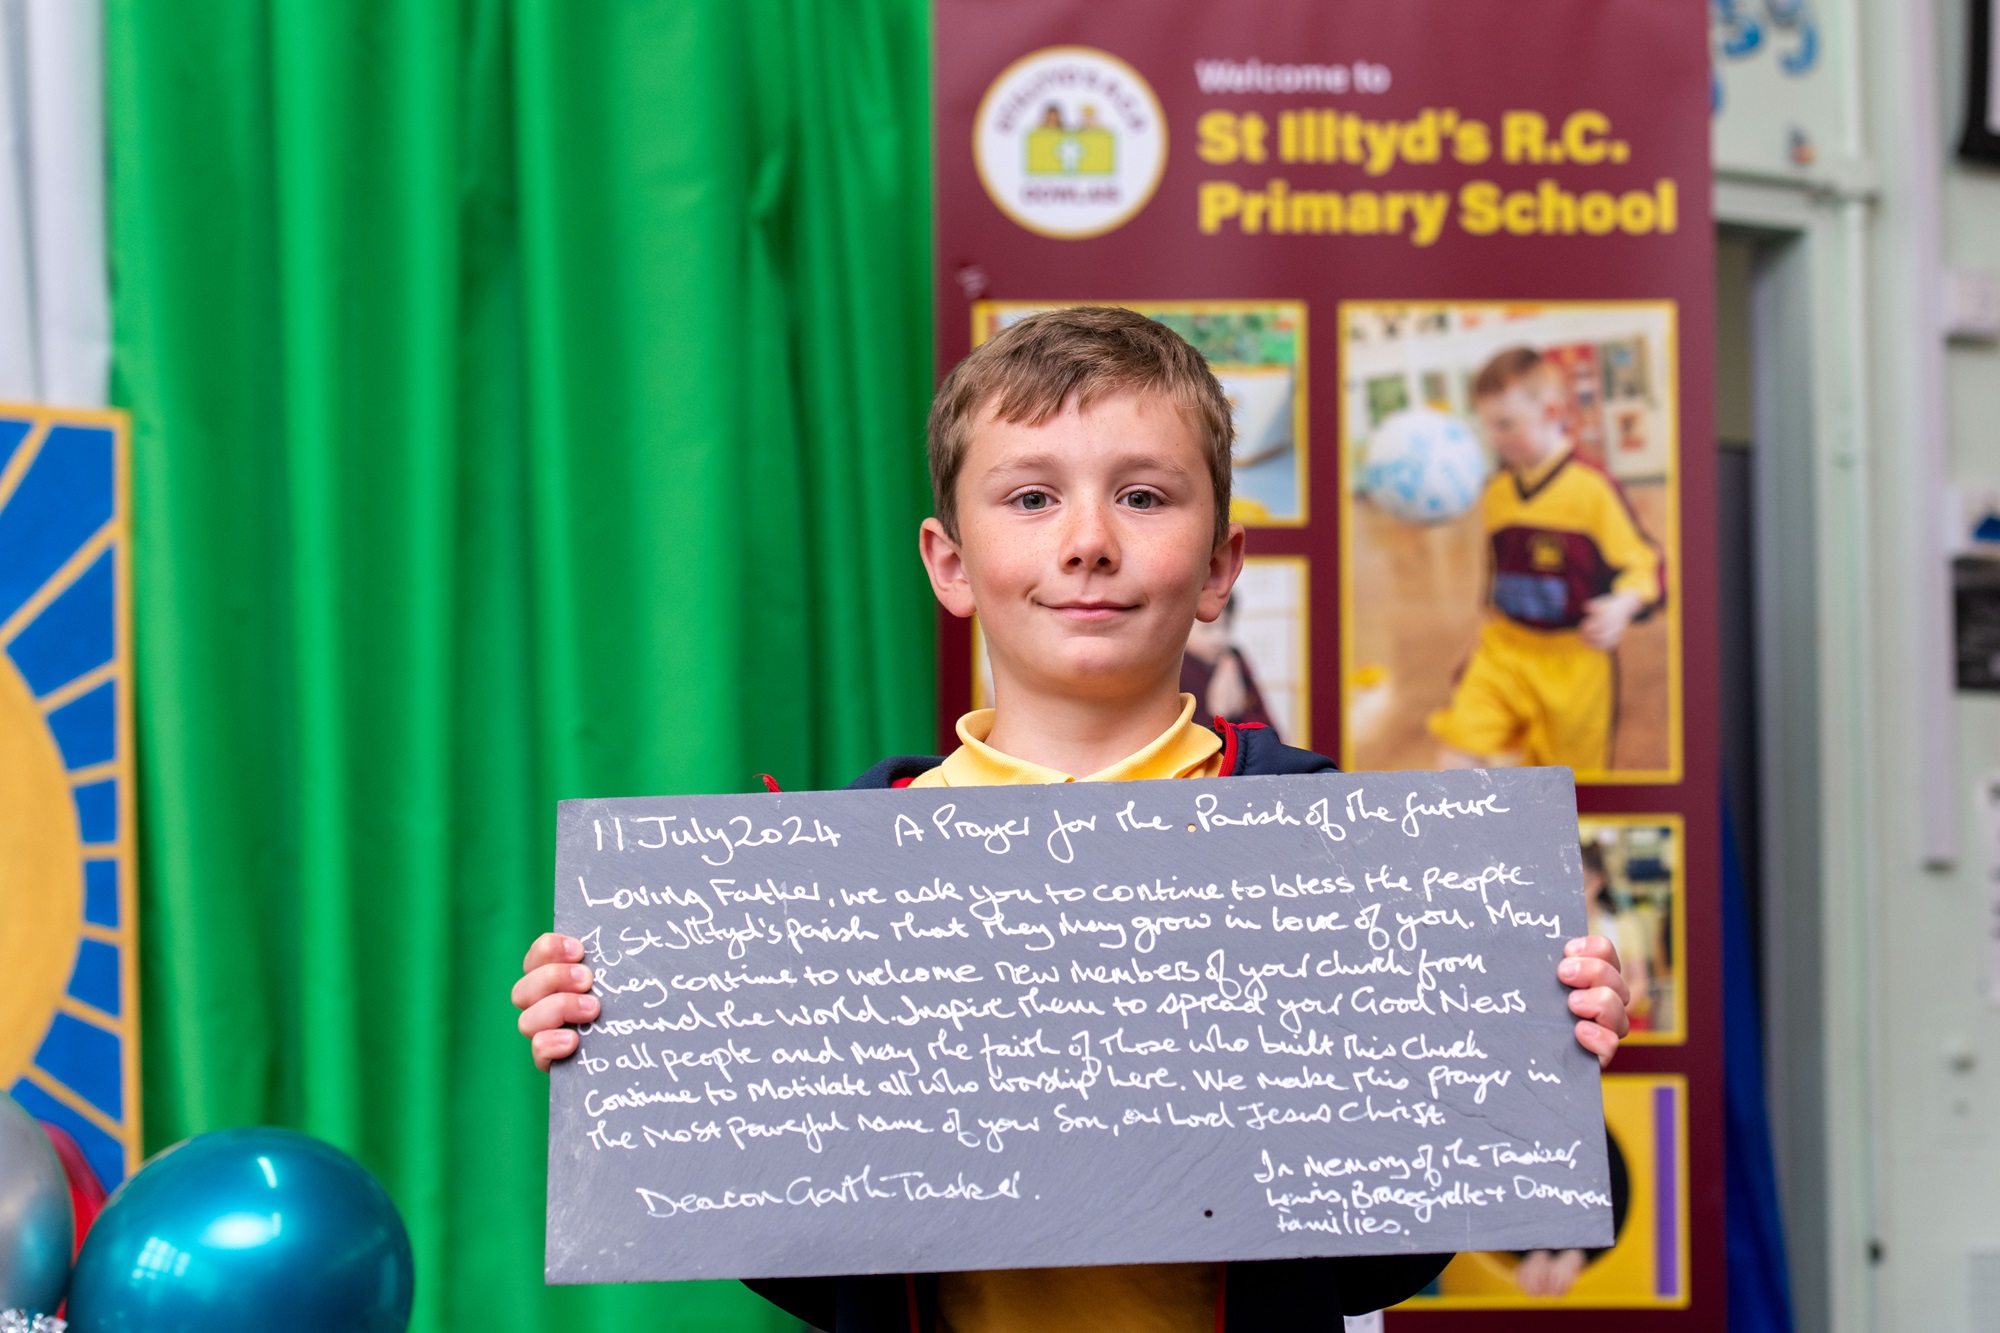 Welcome to
St Illtyd's R.C.
Primary School
DOWLAIS
11 July 2024 A Prayer for the Parish of the future
Loving Father, we ask you to continue to bless the people
of St Illtyd's parish that they may grow in love of you. May
they continue to welcome new members of your church from
around the world. Inspire them to spread your Good News
to all people and may the faith of those who built this church
continue to motivate all who worship here. We make this prayer in
the most powerful name of your Son, our Lord Jesus Christ.
Deacon Garth Tasker.
In memory of the Tasker,
Lewis, Bracegirdle + Donovan
families.